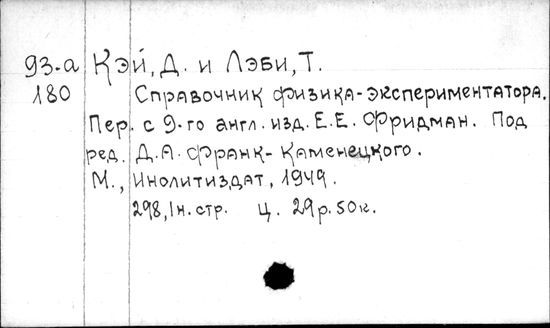 93-а Кэй, Д. и Лэби, Т.
180 Справочник физика-экспериментатора.
Пер. с 9-го англ. изд. Е.Е. Фридман. Под
ред. Д.А. Франк-Каменецкого.
М., Инолитиздат, 1949.
298, 1 н. стр. Ц. 29 р. 50 к.